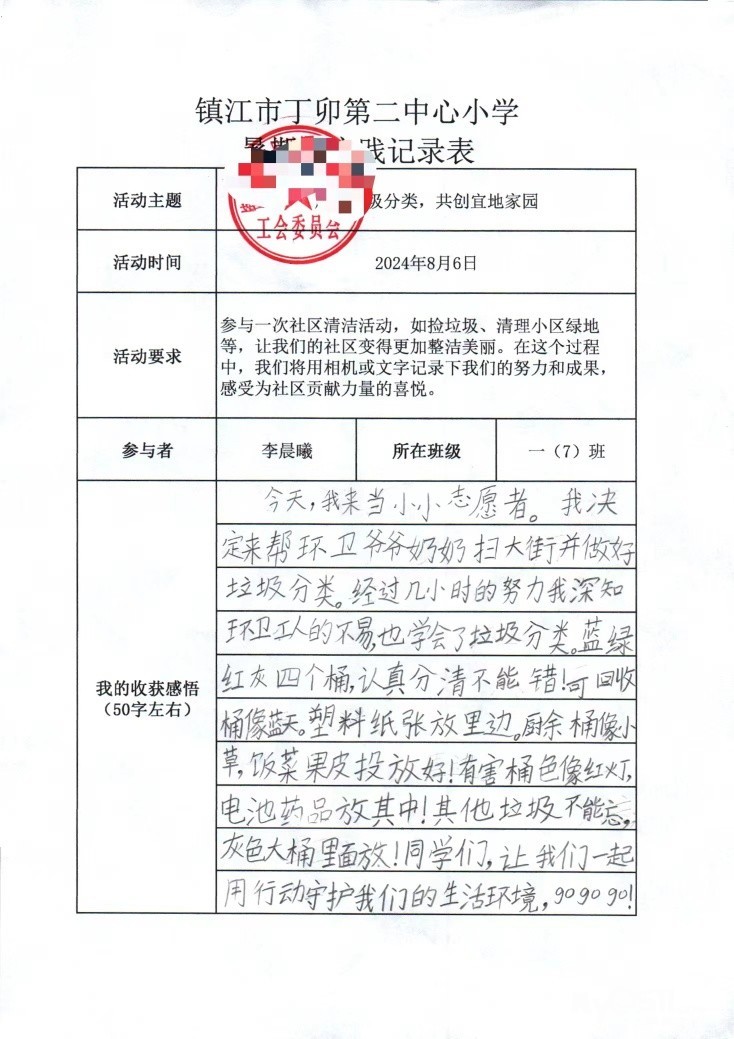 镇江市丁卯第二中心小学
践记录表
活动主题
圾分类，共创宜地家园
工会委员会
活动时间
2024年8月6日
活动要求
参与一次社区清洁活动，如捡垃圾、清理小区绿地
等，让我们的社区变得更加整洁美丽。在这个过程
中，我们将用相机或文字记录下我们的努力和成果，
感受为社区贡献力量的喜悦。
参与者
李晨曦
所在班级
一（7）班
我的收获感悟
（50字左右）
今天，我来当小小志愿者。我决
定来帮环卫爷爷奶奶扫大街并做好
垃圾分类。经过几小时的努力我深知
环卫工人的不易，也学会了垃圾分类。蓝绿
红灰四个桶，认真分清不能错！可回收
桶像蓝天。塑料纸张放里边。厨余桶像小
草，饭菜果皮投放好！有害桶色像红灯，
电池药品放其中！其他垃圾不能忘，
灰色大桶里面放！同学们，让我们一起
用行动守护我们的生活环境，go go go！